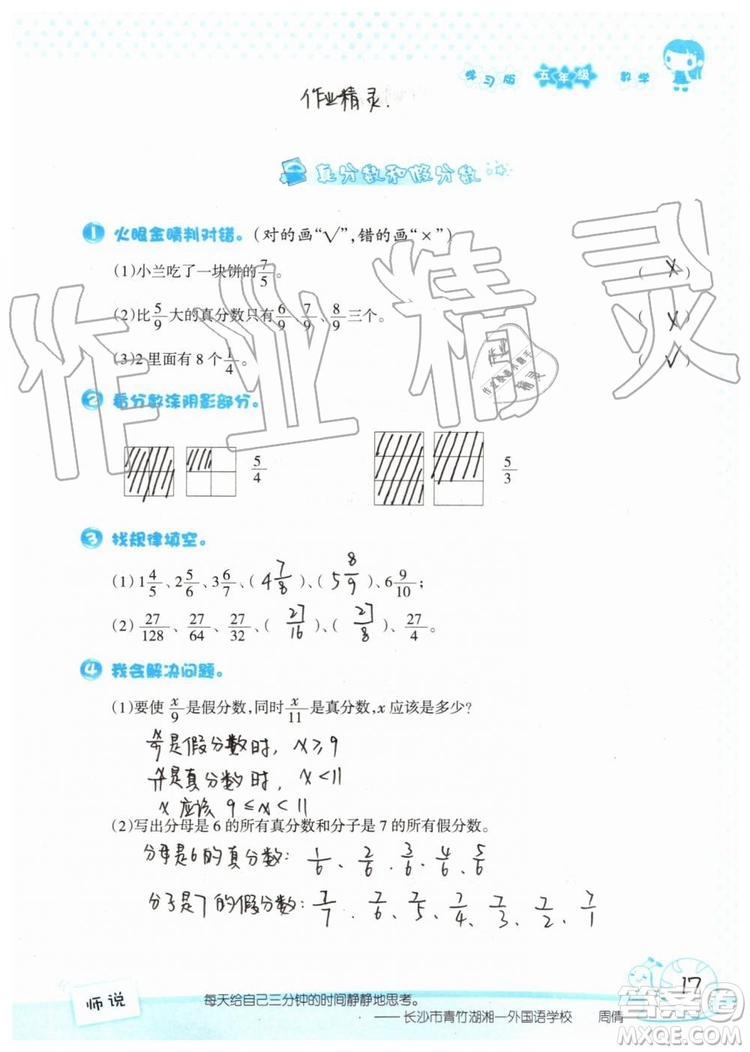 学习版 五年级 数学
作业精灵.
真分数和假分数
1 火眼金睛判对错。(对的画“√”,错的画“×”)
(1)小兰吃了一块饼的7/5。 ( × )
(2)比5/9大的真分数只有6/9、7/9、8/9三个。 ( × )
(3)2里面有8个1/4。 ( √ )
2 看分数涂阴影部分。
5/4 5/3
3 找规律填空。
(1)1 4/5、2 5/6、3 6/7、( 4 7/8 )、( 5 8/9 )、6 9/10;
(2)27/128、27/64、27/32、( 27/16 )、( 27/8 )、27/4。
4 我会解决问题。
(1)要使x/9是假分数,同时x/11是真分数,x应该是多少?
x/9是假分数时, x≥9
x/11是真分数时, x<11
x应该 9≤x<11
(2)写出分母是6的所有真分数和分子是7的所有假分数。
分母是6的真分数: 1/6、2/6、3/6、4/6、5/6
分子是7的假分数: 7/7、7/6、7/5、7/4、7/3、7/2、7/1
17
师说 每天给自己三分钟的时间静静地思考。
——长沙市青竹湖湘一外国语学校 周倩
作业精灵
答案圈
MXQE.COM